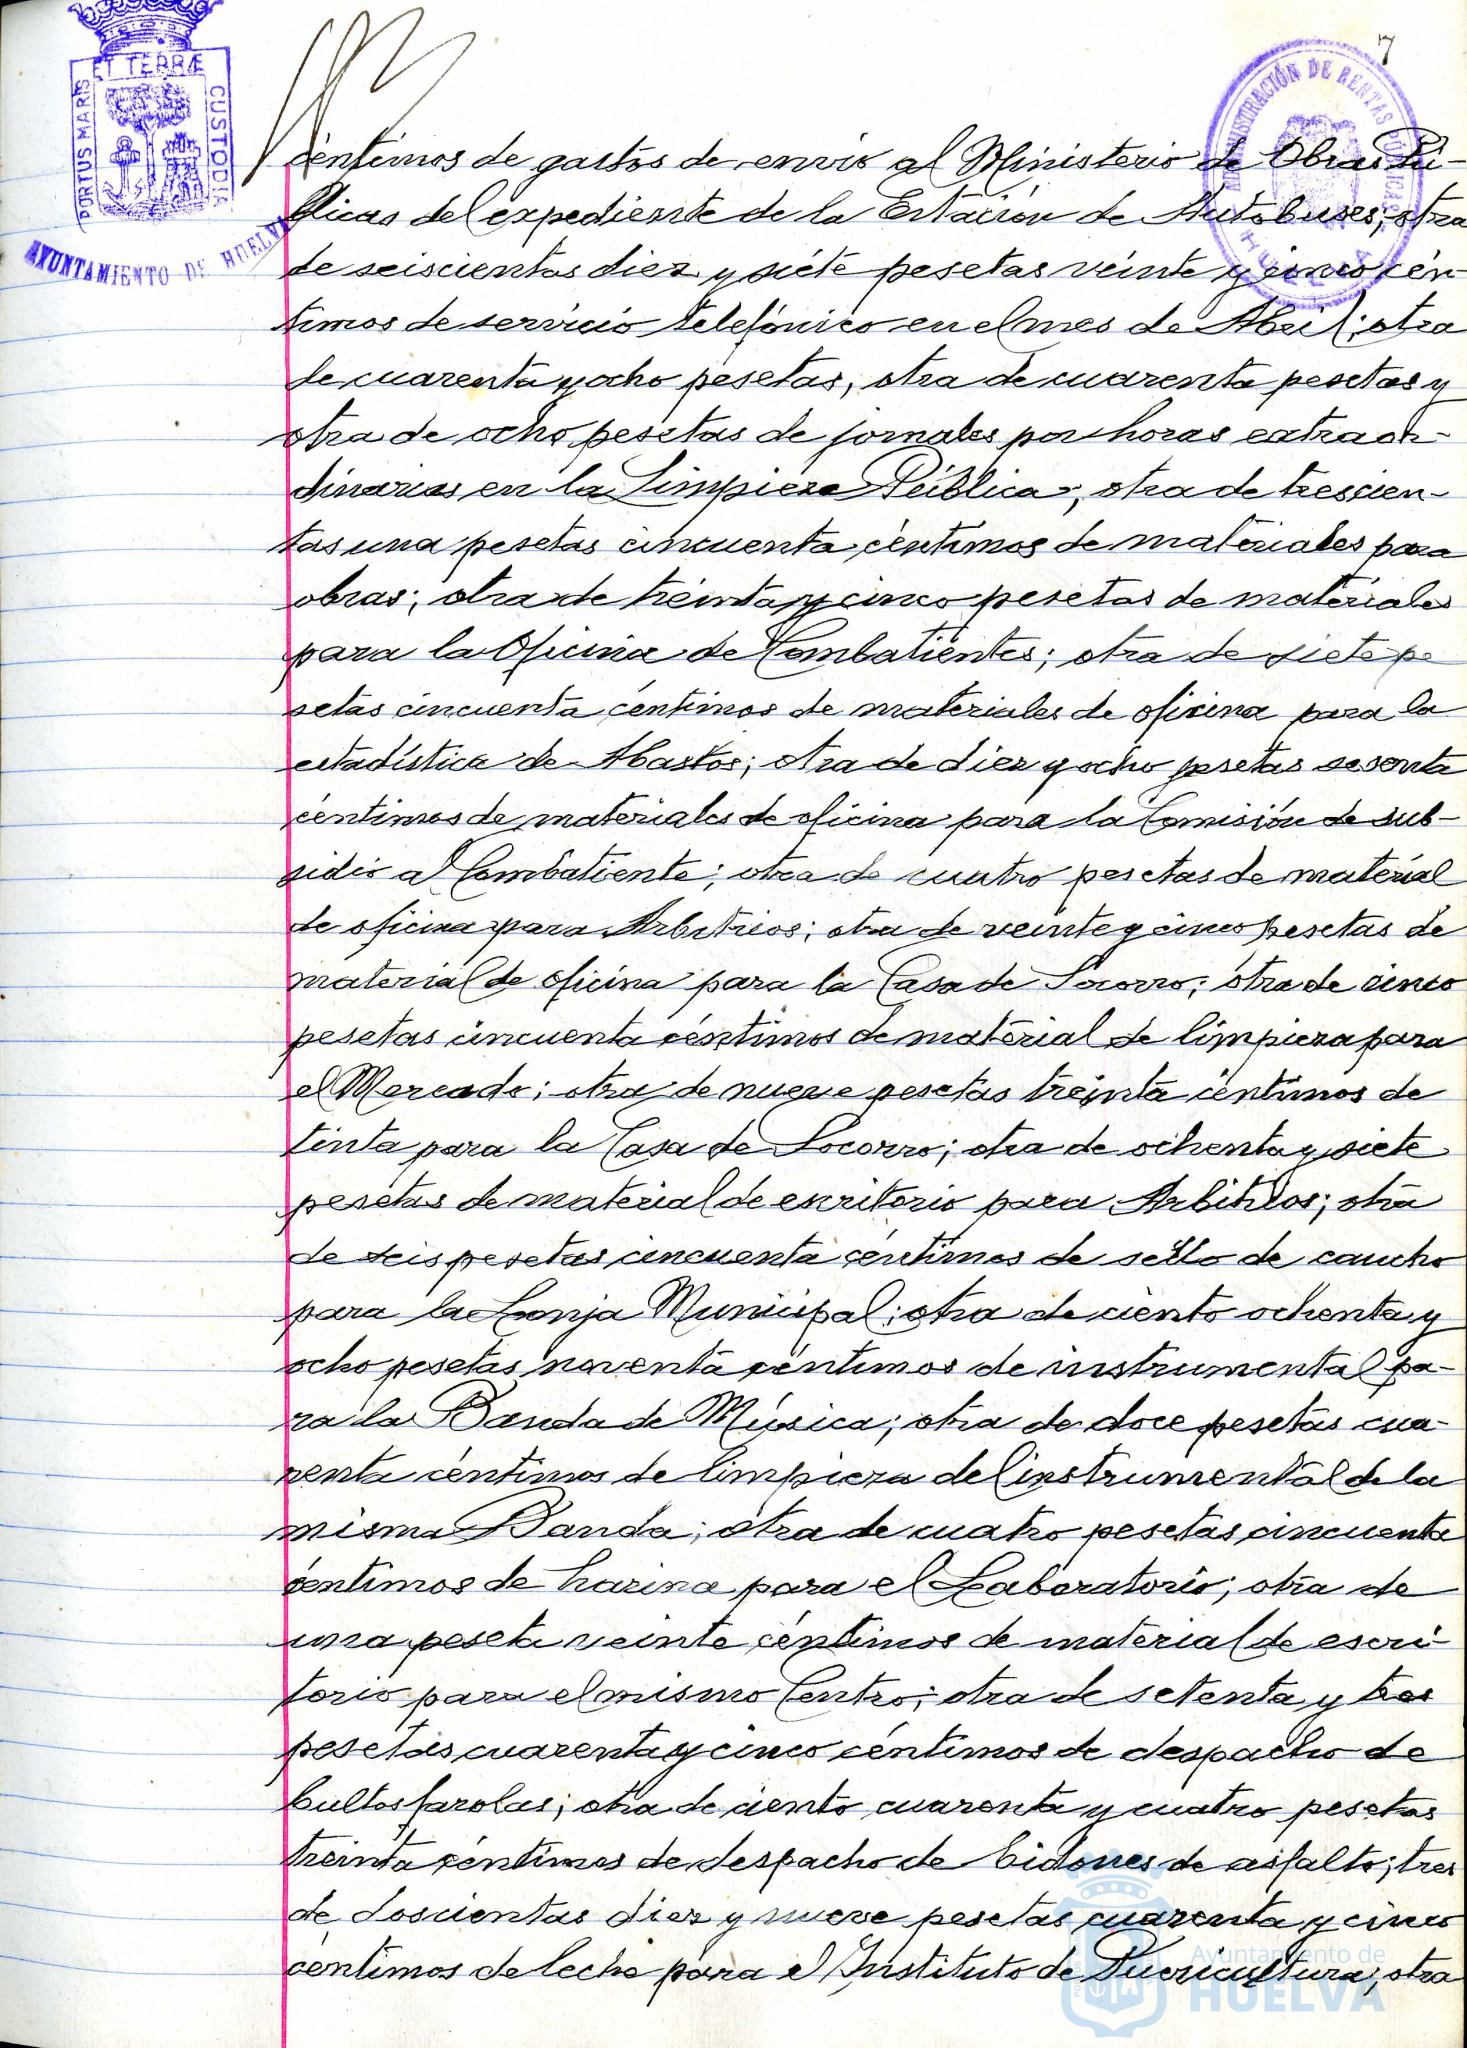 7
ET TERRÆ
PORTUS MARIS
CUSTODIA
AYUNTAMIENTO DE HUELVA
ADMINISTRACIÓN DE RENTAS PUBLICAS
HUELVA
céntimos de gastos de envio al Ministerio de Obras Pú-
blicas del expediente de la Estación de Autobuses; otra
de seiscientas diez y siete pesetas veinte y cinco cén-
timos de servicio telefónico en el mes de Abril; otra
de cuarenta y ocho pesetas, otra de cuarenta pesetas y
otra de ocho pesetas de jornales por horas extraor-
dinarias en la Limpieza Pública; otra de trescien-
tas una pesetas cincuenta céntimos de materiales para
obras; otra de treinta y cinco pesetas de materiales
para la Oficina de Combatientes; otra de siete pe
setas cincuenta céntimos de materiales de oficina para la
estadística de Abastos; otra de diez y ocho pesetas sesenta
céntimos de materiales de oficina para la Comisión de sub-
sidio al Combatiente; otra de cuatro pesetas de material
de oficina para Arbitrios; otra de veinte y cinco pesetas de
material de oficina para la Casa de Socorro; otra de cinco
pesetas cincuenta céntimos de material de limpieza para
el Mercado; otra de nueve pesetas treinta céntimos de
tinta para la Casa de Socorro; otra de ochenta y siete
pesetas de material de escritorio para Arbitrios; otra
de seis pesetas cincuenta céntimos de sello de caucho
para la Lonja Municipal; otra de ciento ochenta y
ocho pesetas noventa céntimos de instrumental pa-
ra la Banda de Música; otra de doce pesetas cua-
renta céntimos de limpieza del instrumental de la
misma Banda; otra de cuatro pesetas cincuenta
céntimos de harina para el Laboratorio; otra de
una peseta veinte céntimos de material de escri-
torio para el mismo Centro; otra de setenta y tres
pesetas cuarenta y cinco céntimos de despacho de
bultos farolas; otra de ciento cuarenta y cuatro pesetas
treinta céntimos de despacho de bidones de asfalto; tres
de doscientas diez y nueve pesetas cuarenta y cinco
céntimos de leche para el Instituto de Puericultura; otra
Ayuntamiento de
HUELVA